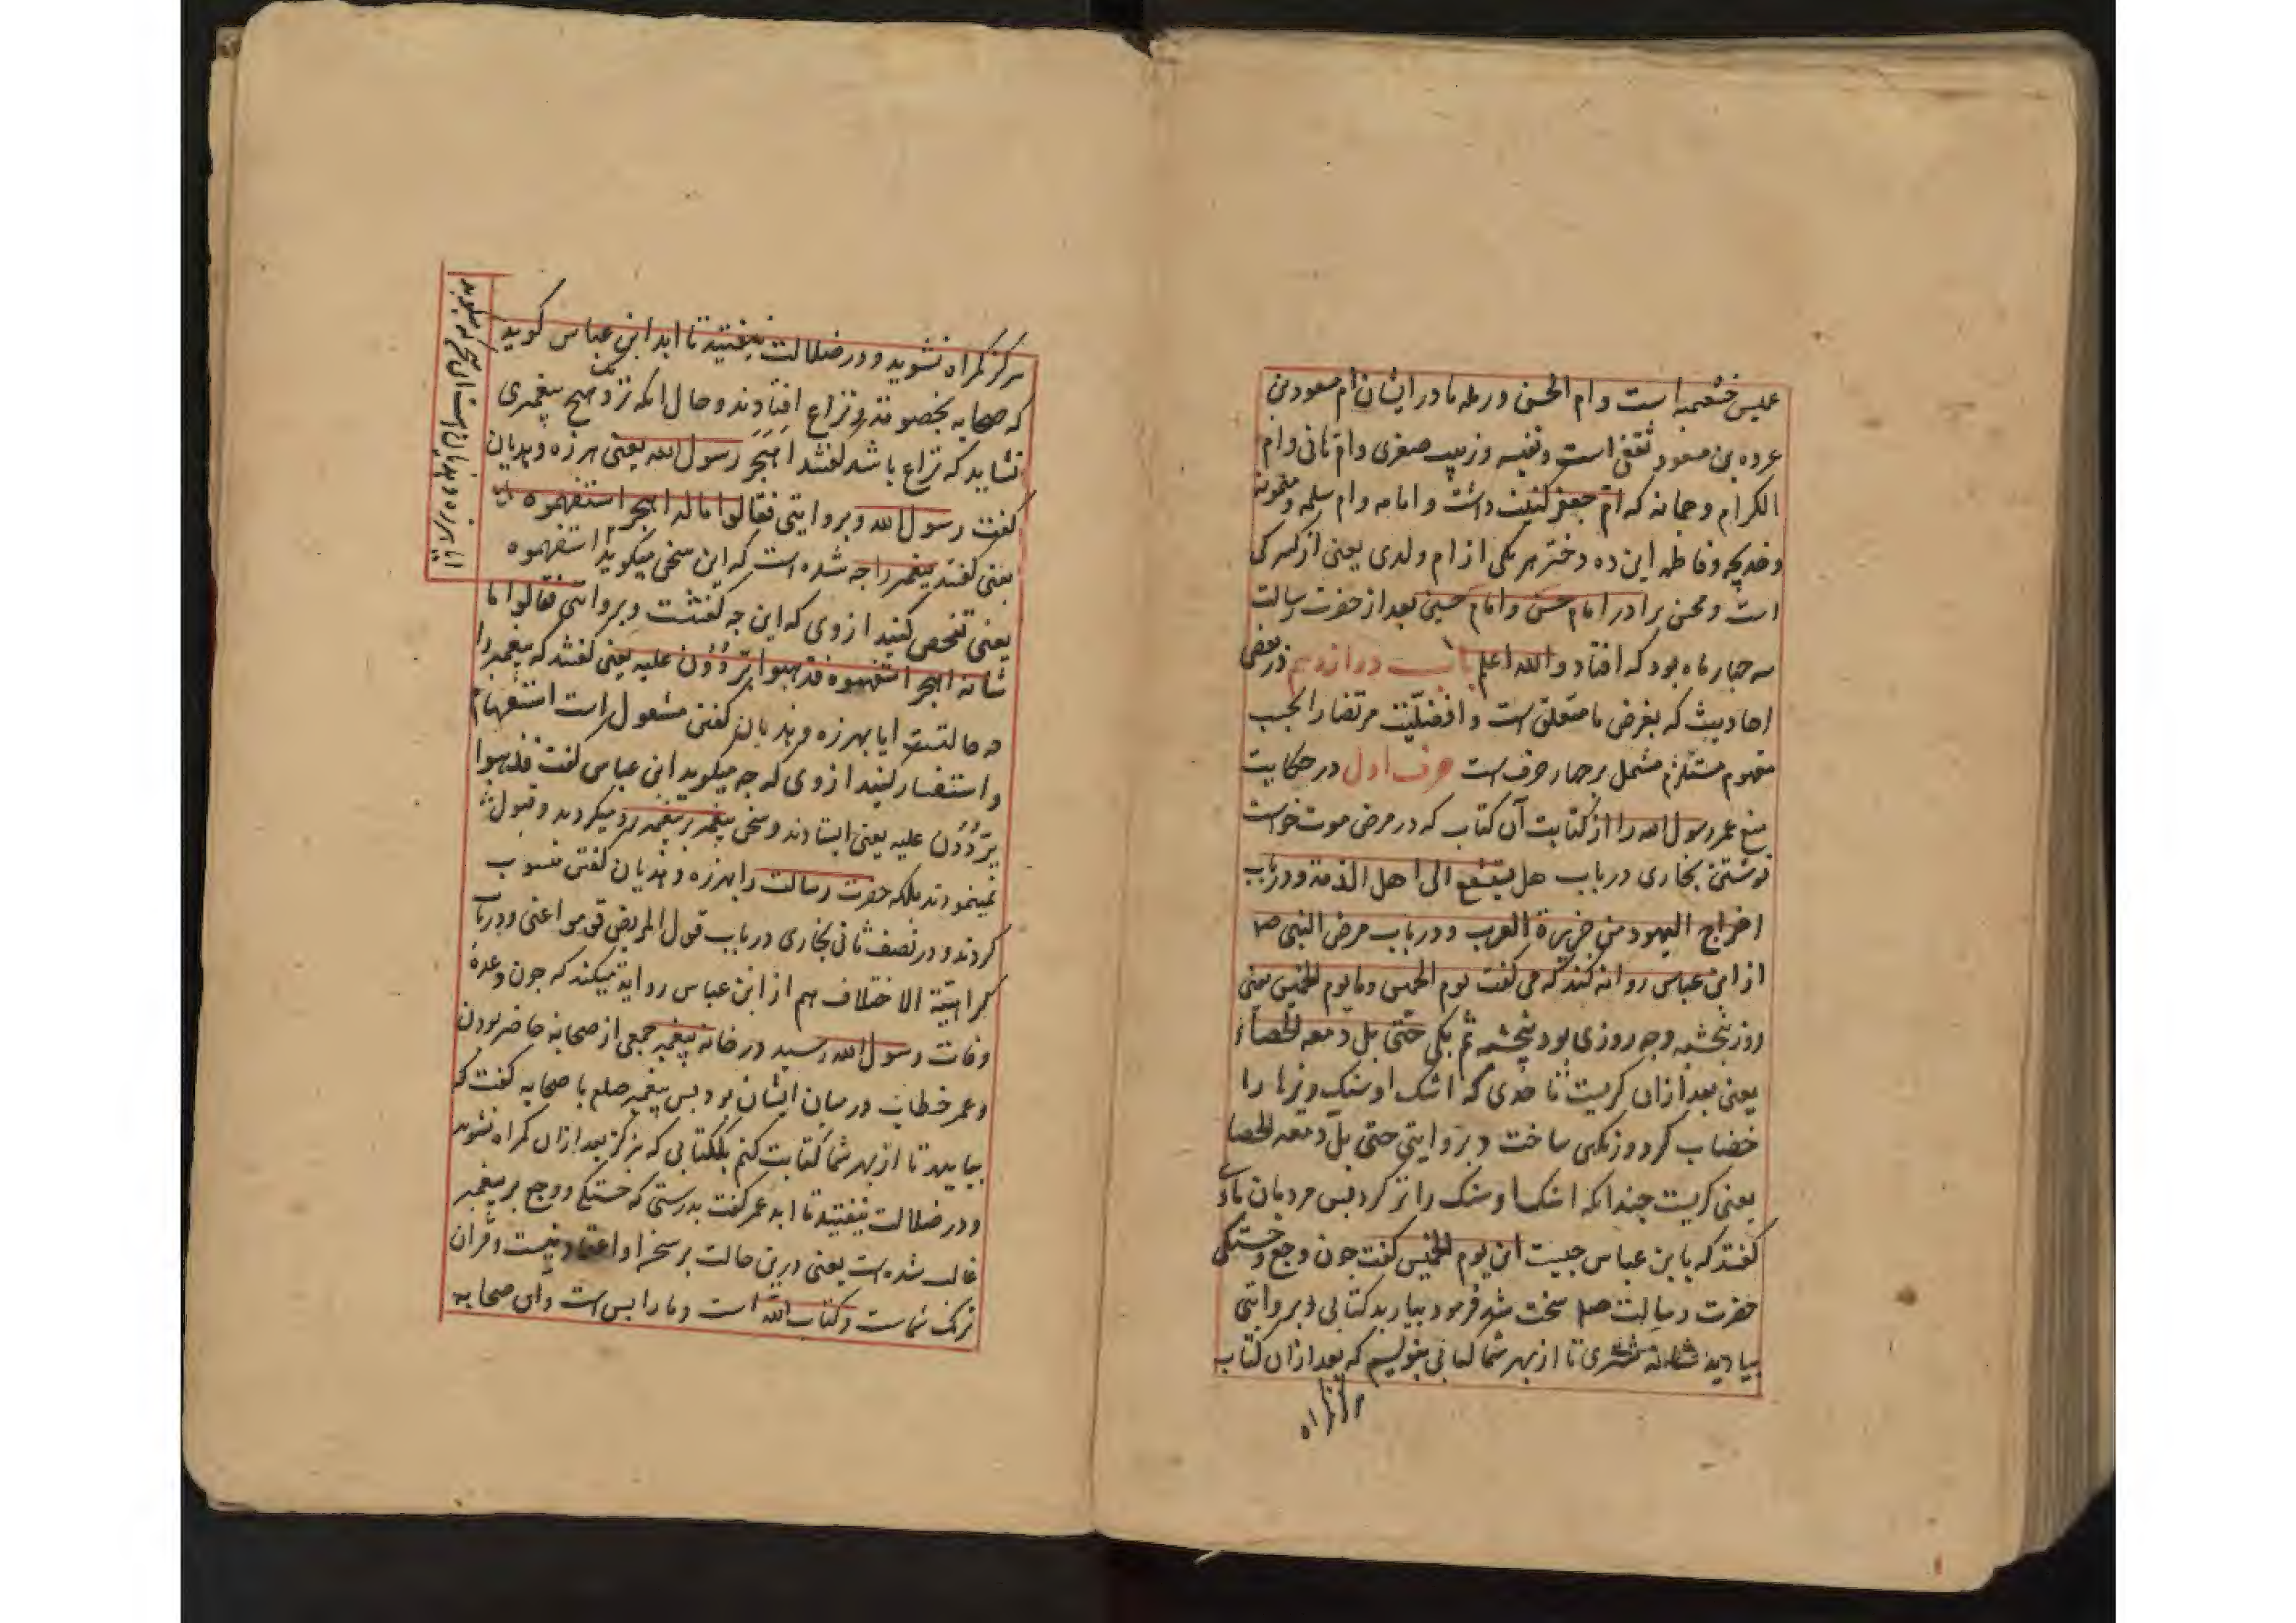 عمیس خثعمیه است وام الحسن ورمله مادر ایشان ام مسعود بن
عروه بن مسعود ثقفی است ونفیسه وزینب صغری وام هانی وام
الکرام وجمانه که ام جعفر کنیت داشت وامامه وام سلمه ومیمونه
وخدیجه وفاطمه این ده دختر هر یکی از ام ولدی یعنی از کنیزکی
است ومحسن برادر امام حسن وامام حسین بعد از حضرت رسالت
سه چهار ماه بود که افتاد والله اعلم باب دوازدهم در بعضی
احادیث که بغرض ما متعلق است وافضلیت مرتضا را بحسب
مفهوم مستلزم مشتمل بر چهار حرف است حرف اول در حکایت
منع عمر رسول الله را از کتابت آن کتاب که در مرض موت خواست
نوشتن بخاری در باب هل یستشفع الی اهل الذمة ودر باب
اخراج الیهود من جزیرة العرب ودر باب مرض النبی صلعم
از ابن عباس روایة کند که می گفت یوم الخمیس وما یوم الخمیس یعنی
روز پنجشنبه وچه روزی بود پنجشنبه ثم بکی حتی بل دمعه الحصاء
یعنی بعد ازان گریست تا حدی که اشک او سنک ریزها را
خضاب کرد ورنکین ساخت وبروایتی حتی بل دمعه الحصا
یعنی گریست چندانکه اشک او سنک را تر کرد پس مردمان باوی
گفتند که یا بن عباس چیست این یوم الخمیس گفت چون وجع وخستگی
حضرت رسالت صلعم سخت شد فرمود بیارید کتابی وبروایتی
بیارید شانه شتری تا از بهر شما کتابی بنویسم که بعد ازان کتاب
هرگز گمراه
هرگز گمراه نشوید ودر ضلالت نیفتید تا ابد ابن عباس گوید
که صحابه بخصومت ونزاع افتادند وحال انکه نزد هیچ پیغمبری
نشاید که نزاع باشد گفتند اهجر رسول الله یعنی هرزه وهذیان
گفت رسول الله وبروایتی فقالوا ما له اهجر استفهموه
یعنی گفتند پیغمبر را چه شده است که این سخن میگوید استفهموه
یعنی تفحص کنید از وی که این چه گفتست وبروایتی فقالوا ما
شانه اهجر استفهموه فذهبوا یرددون علیه یعنی گفتند که پیغمبر را
چه حالتست ایا بهرزه وهذیان گفتن مشغول است استفهام
واستفسار کنید از وی که چه میگوید ابن عباس گفت فذهبوا
یرددون علیه یعنی ایستادند وسخن پیغمبر بر پیغمبر رد میکردند وقبول
نمینمودند بلکه حضرت رسالت را بهرزه وهذیان گفتن منسوب
کردند ودر نصف ثانی بخاری در باب قول المریض قوموا عنی ودر باب
کراهیة الاختلاف هم از ابن عباس روایة میکند که چون وعدهٔ
وفات رسول الله رسید در خانه پیغمبر جمعی از صحابه حاضر بودن
وعمر خطاب در میان ایشان بود پس پیغمبر صلعم با صحابه گفت که
بیایید تا از بهر شما کتابت کنم کتابی که هرگز بعد ازان گمراه نشوید
ودر ضلالت نیفتید تا ابد عمر گفت بدرستی که خستگی ووجع بر پیغمبر
غالب شده است یعنی درین حالت بر سخن او اعتماد نیست وقران
نزد شماست وکتاب الله است وما را بس است وآن صحابه